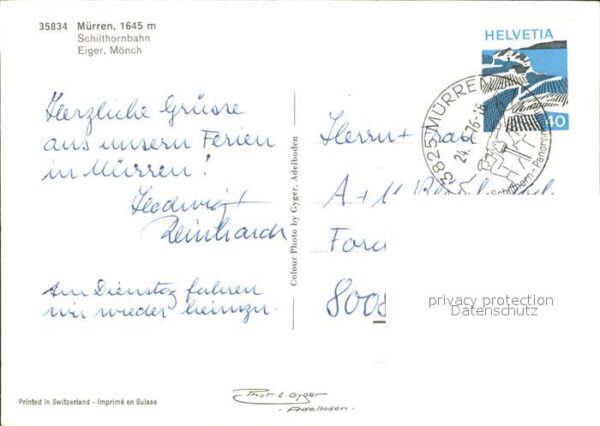 35834 Mürren, 1645 m
Schilthornbahn
Eiger, Mönch
Herzliche Grüsse
aus unsern Ferien
in Mürren!
Hedwig +
Reinhard
Am Dienstag fahren
wir wieder heimzu.
Printed in Switzerland - Imprimé en Suisse
Colour Photo by Gyger, Adelboden
Phot E. Gyger
- Adelboden -
HELVETIA
40
3825 MÜRREN
Schilthorn - Panor
Herrn + Frau
A + 
8008
privacy protection
Datenschutz